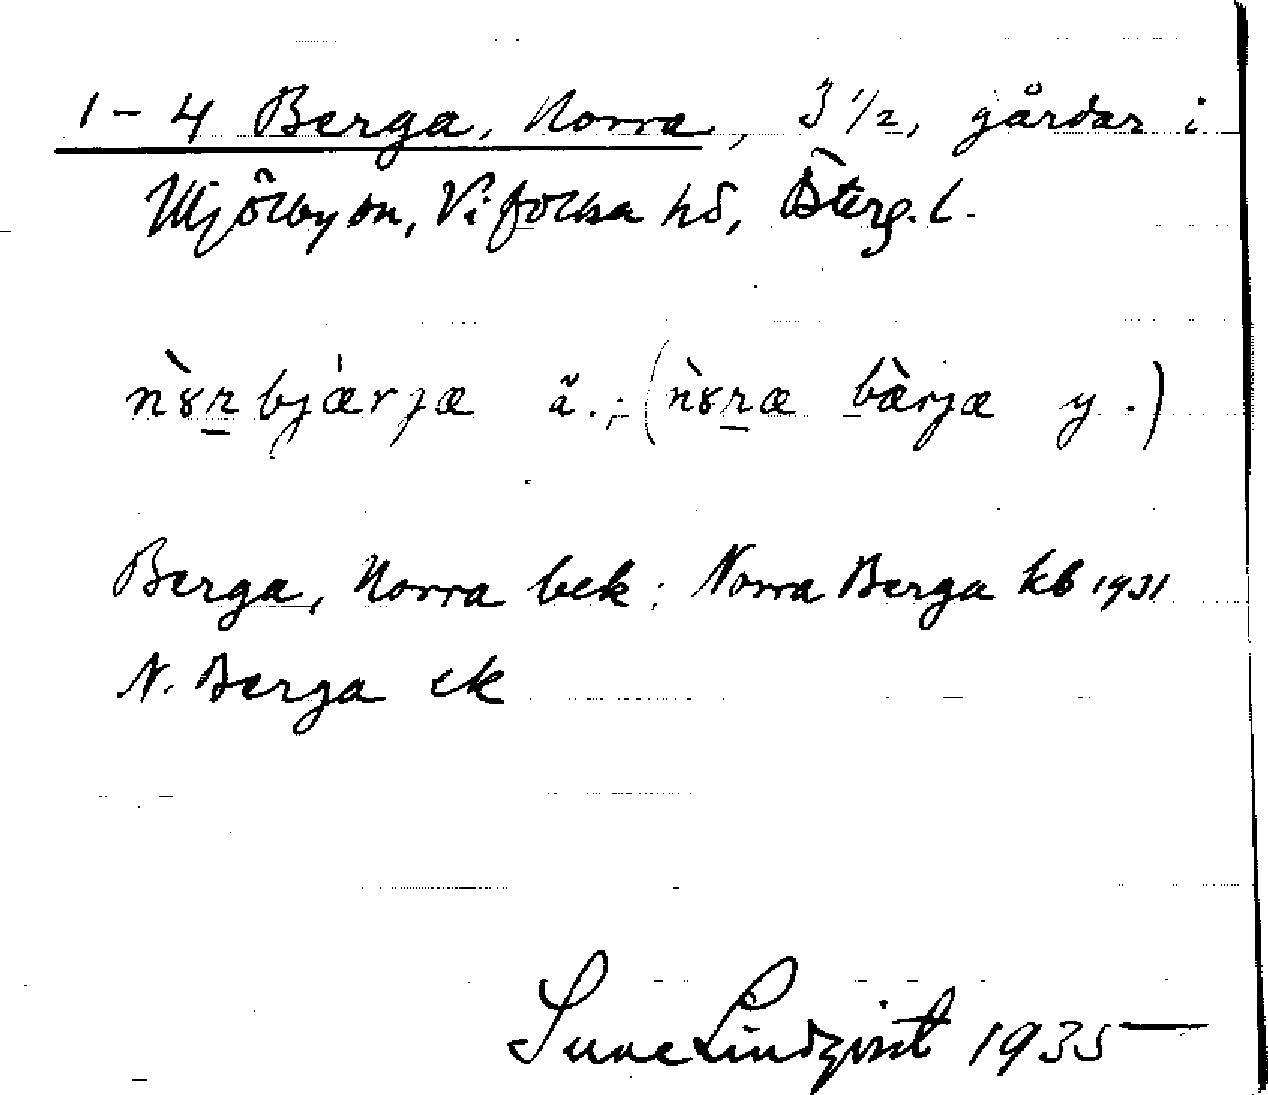 1-4 Berga, Norra, 3 1/2, gårdar i
Mjölby sn, Vifolka hd, Österg. l.
n&#768;ȣṟbjæ̀rjæ ä.; (n&#768;ȣṟæ bæ̀rjæ y.)
Berga, Norra bek; Norra Berga kb 1931
N. Berga ek
Sune Lindqvist 1935